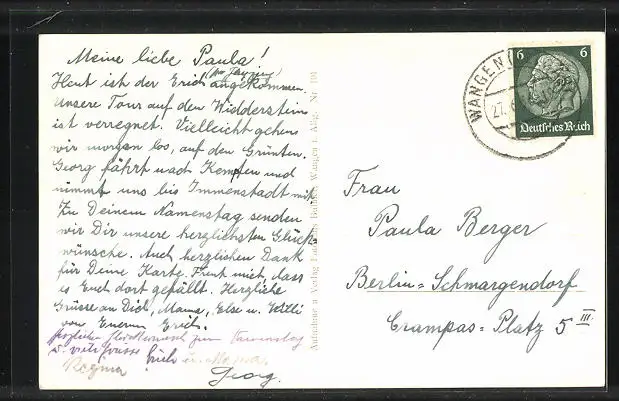 Meine liebe Paula!
Heut ist der Erich angekommen.
Unsere Tour auf den Widderstein
ist verregnet. Vielleicht gehen
wir morgen los, auf den Grünten.
Georg fährt nach Kempten und
nimmt uns bis Immenstadt mit.
Zu Deinem Namenstag senden
wir Dir unsere herzlichsten Glück-
wünsche. Auch herzlichen Dank
für Deine Karte. Freut mich, dass
es Euch dort gefällt. Herzliche
Grüsse an Dich, Mama, Else u. Willi
von Eurem Erich.
zum Namenstag
u. viele Grüsse
Regina
Georg.
Aufnahme u. Verlag Wangen i. Allg. Nr. 191
WANGEN
27.
6 6
Deutsches Reich
Frau
Paula Berger
Berlin=Schmargendorf
Crampas=Platz 5 III.